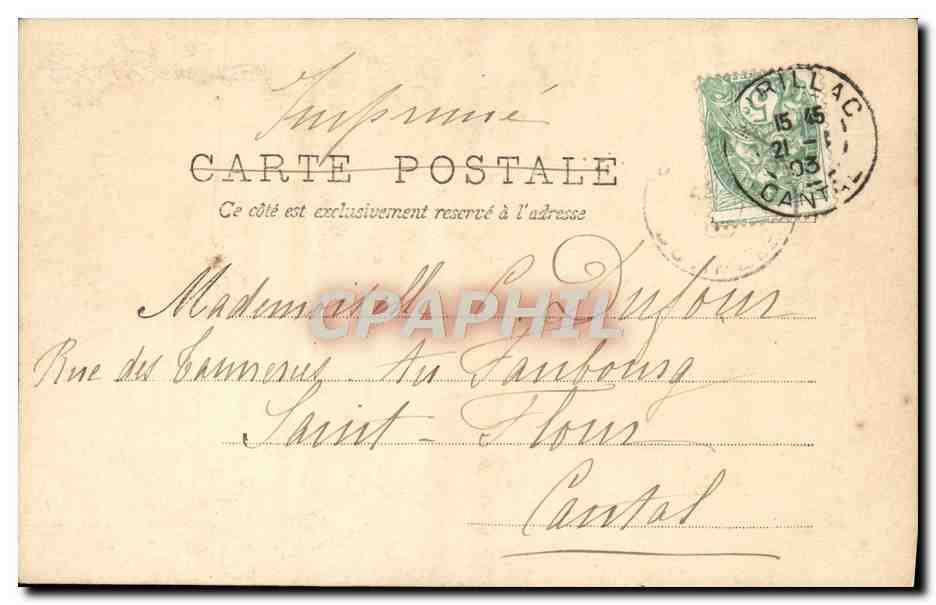 Imprimé
CARTE POSTALE
Ce côté est exclusivement reservé à l'adresse
5
RILLAC
15 45
21
03
CANTAL
Mademoiselle C. Dufour
Rue des Tanneries. Au Faubourg
Saint-Flour
Cantal
CPAPHIL